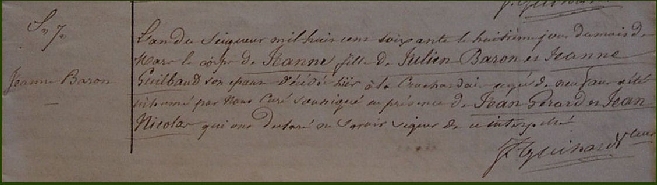 S. 7.
Jeanne Baron
L'an du Seigneur mil huit cent soixante le huitième jour du mois de
Mars le corps de Jeanne, fille de Julien Baron et Jeanne
Guilbaud son épouse décédée hier à la âgée de neuf ans a été
inhumé par Nous Curé soussigné en présence de Jean Gérard et Jean
Nicolas qui ont déclaré ne savoir signer de ce interpellé